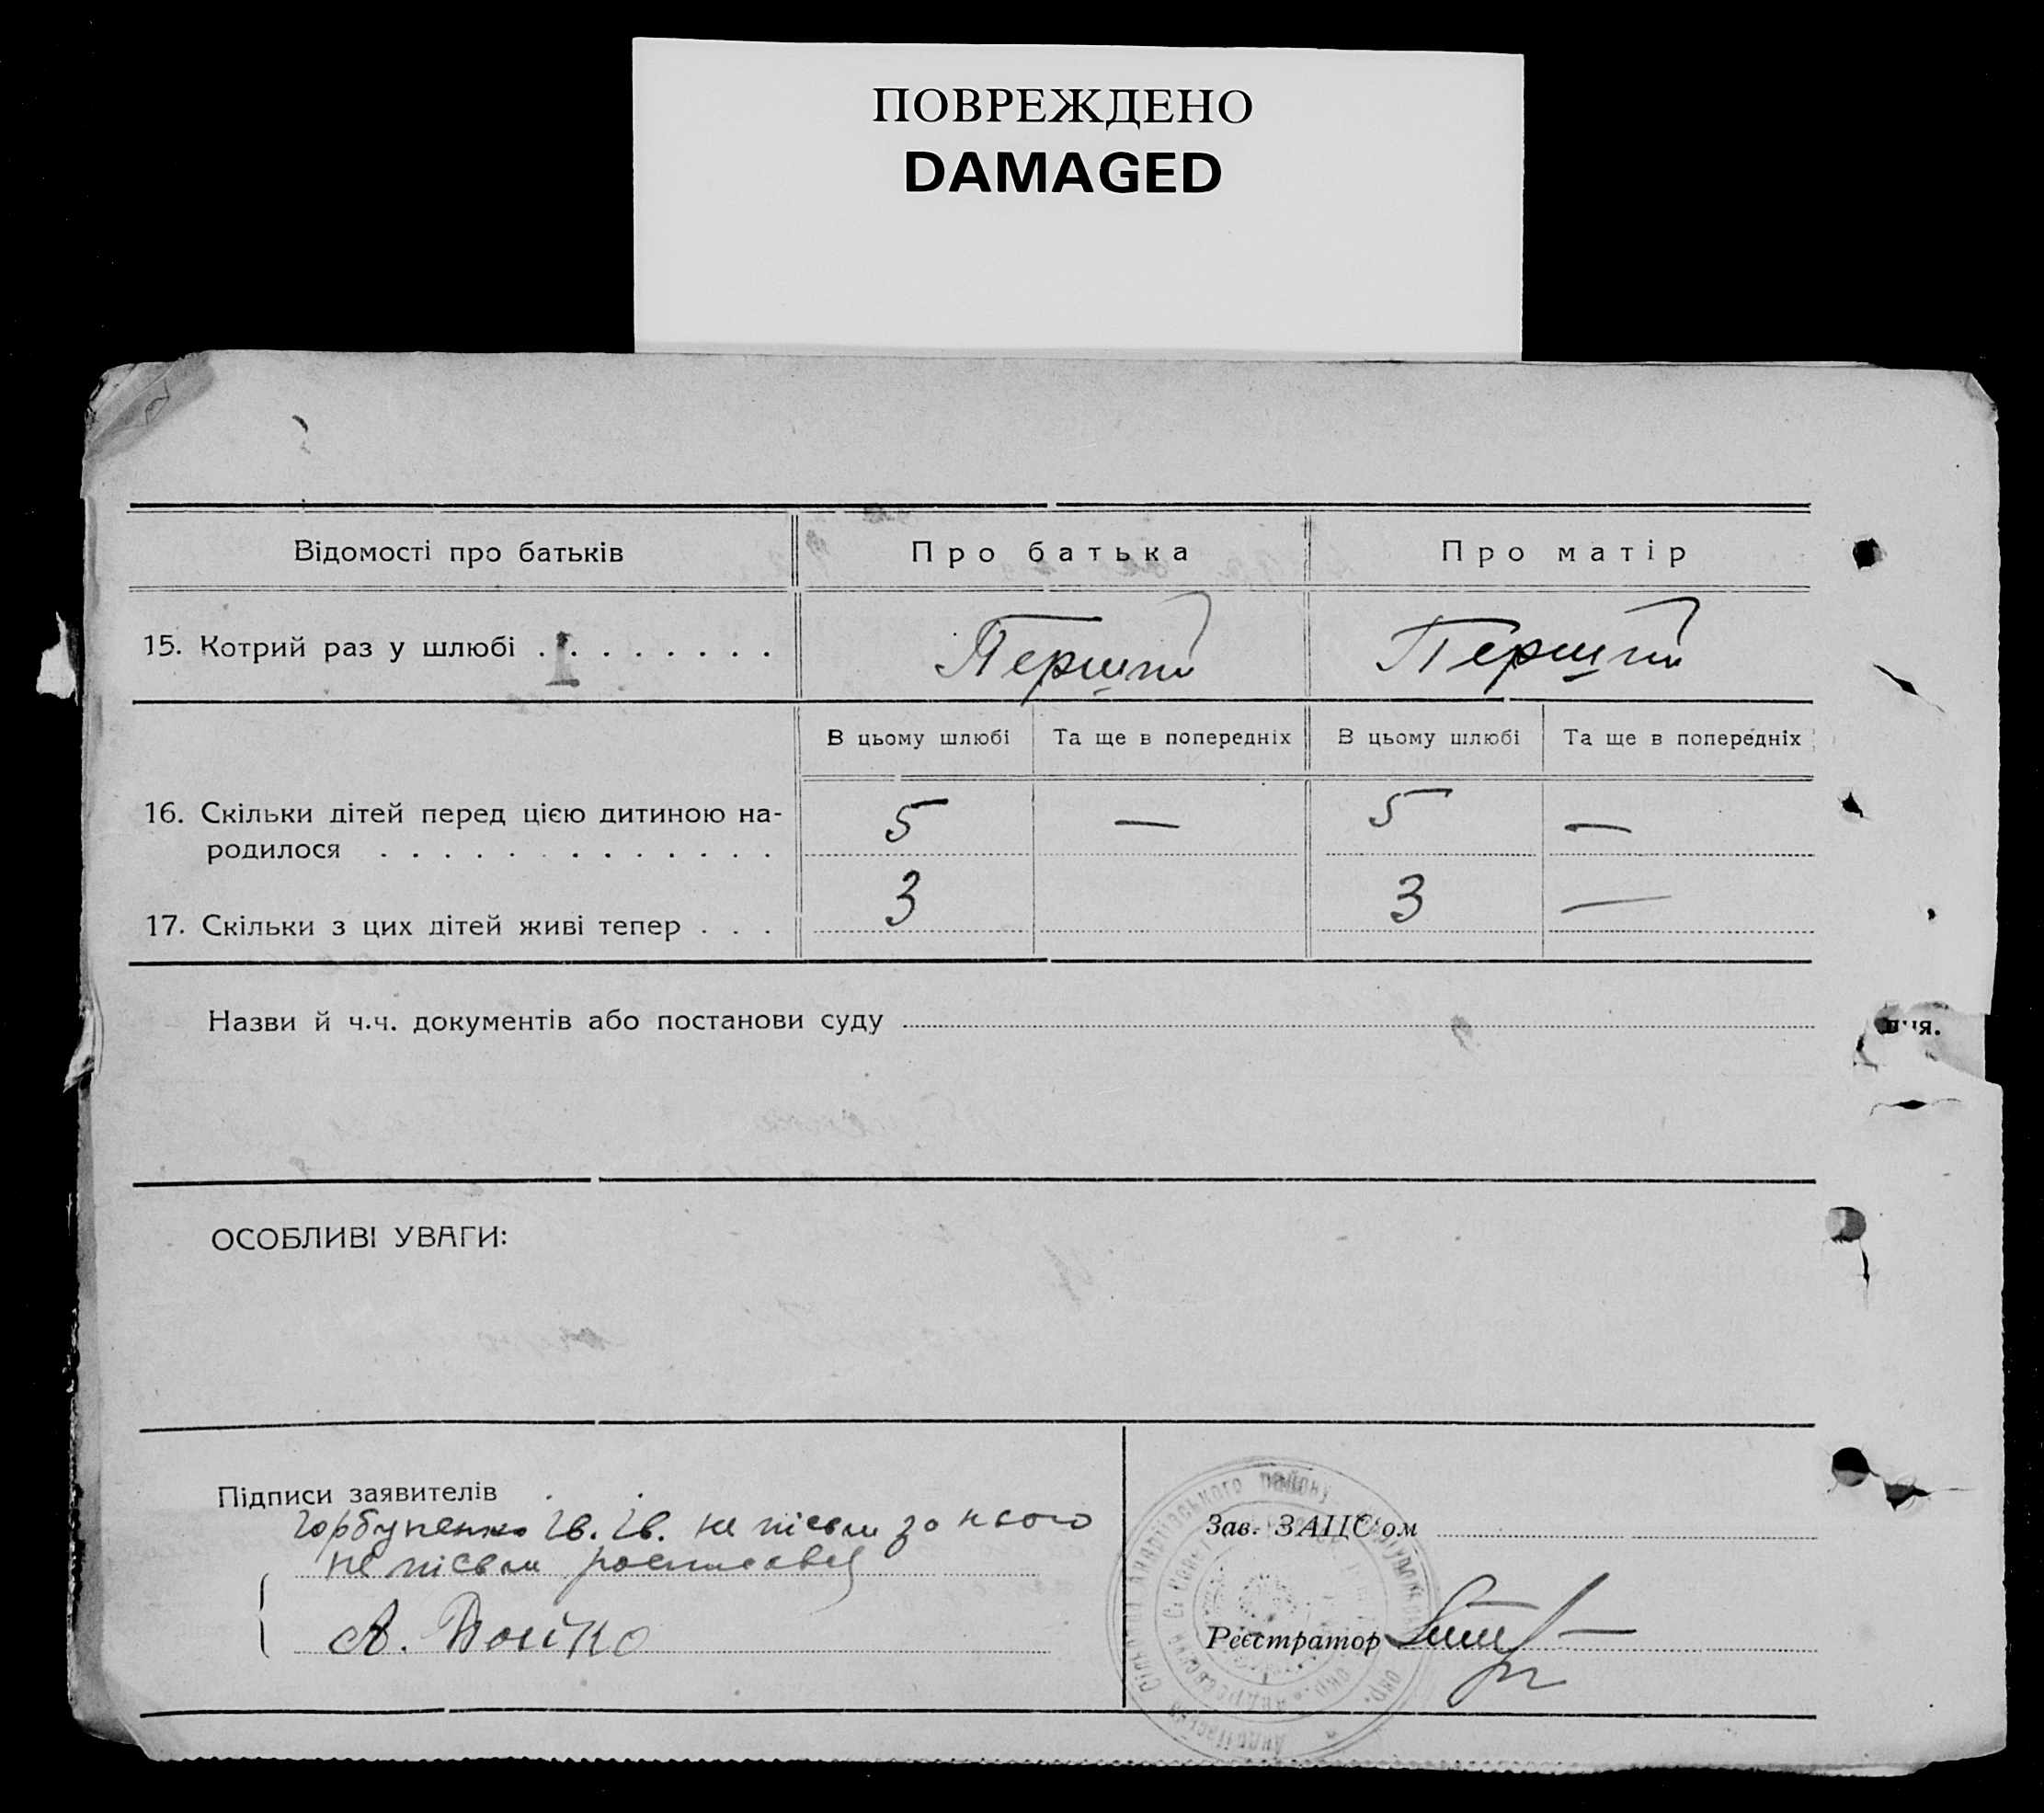 ПОВРЕЖДЕНО
DAMAGED
Відомості про батьків
Про батька
Про матір
15. Котрий раз у шлюбі . . . . . . . .
I
Перший
Перший
В цьому шлюбі
Та ще в попередніх
В цьому шлюбі
Та ще в попередніх
16. Скільки дітей перед цією дитиною на-
родилося . . . . . . . . . . . . .
5 — 5 —
17. Скільки з цих дітей живі тепер . . .
3 3 —
Назви й ч.ч. документів або постанови суду
ОСОБЛИВІ УВАГИ:
Підписи заявителів
Ів. Ів. за нього
А. Бойко
Зав. ЗАЦС'ом
Реєстратор
району